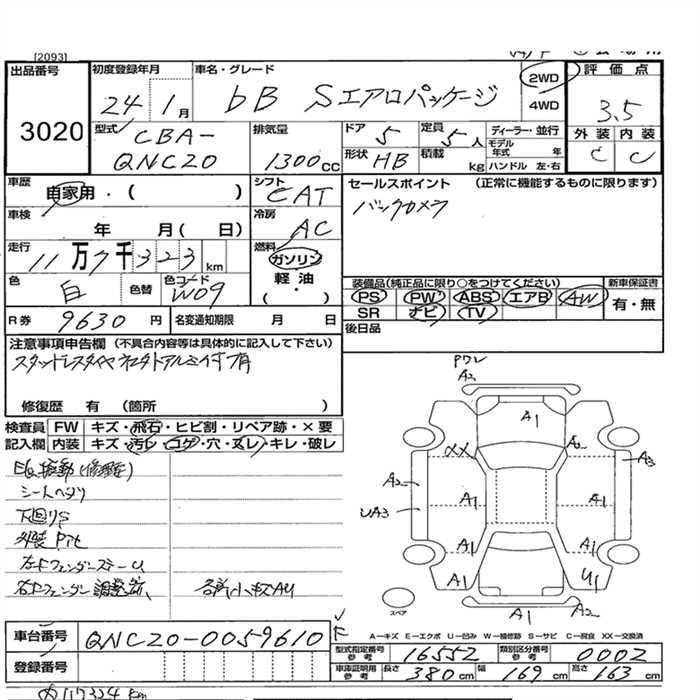 [2093]
出品番号
3020
初度登録年月
24 1月
車名・グレード
bB Sエアロパッケージ
2WD
4WD
評価点
3.5
外装 内装
C C
型式
CBA-
QNC20
排気量
1300cc
ドア 5
定員 5人
形状 HB
積載 kg
ディーラー・並行
モデル年式 年
ハンドル 左・右
車歴
自家用・( )
シフト
CAT
車検
年 月( 日)
冷房
AC
走行
11万7千323km
燃料
ガソリン
軽油
( ・ )
色 白
色替
色コード W09
R券 9630円
名変通知期限 月 日
セールスポイント (正常に機能するものに限ります)
バックカメラ
装備品(純正品に限り○をつけてください)
PS PW ABS エアB AW
SR ナビ TV
新車保証書
有・無
後日品
注意事項申告欄 (不具合内容等は具体的に記入して下さい)
修復歴 有 (箇所 )
検査員 FW キズ・飛石・ヒビ割・リペア跡・×要
記入欄 内装 キズ・汚レ・コゲ・穴・スレ・キレ・破レ
シートヘタリ
下回りS
外装Pアセ
各所小キズAU
Pクレ
A2
A1
XX
A2
A2
A3
UA3
A1
A1
A1
A1
A1
U1
A1
A2
スペア
A-キズ E-エクボ U-凹み W-補修跡 S-サビ C-腐食 XX-交換済
車台番号 QNC20-0059610
登録番号
型式指定番号 参考 16552
類別区分番号 参考 0002
車庫証明用 参考 長さ 380cm 幅 169cm 高さ 163cm
117324km